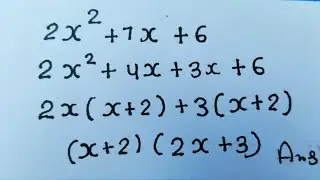 2x² + 7x + 6
2x² + 4x + 3x + 6
2x(x+2) + 3(x+2)
(x+2) (2x+3) Ans